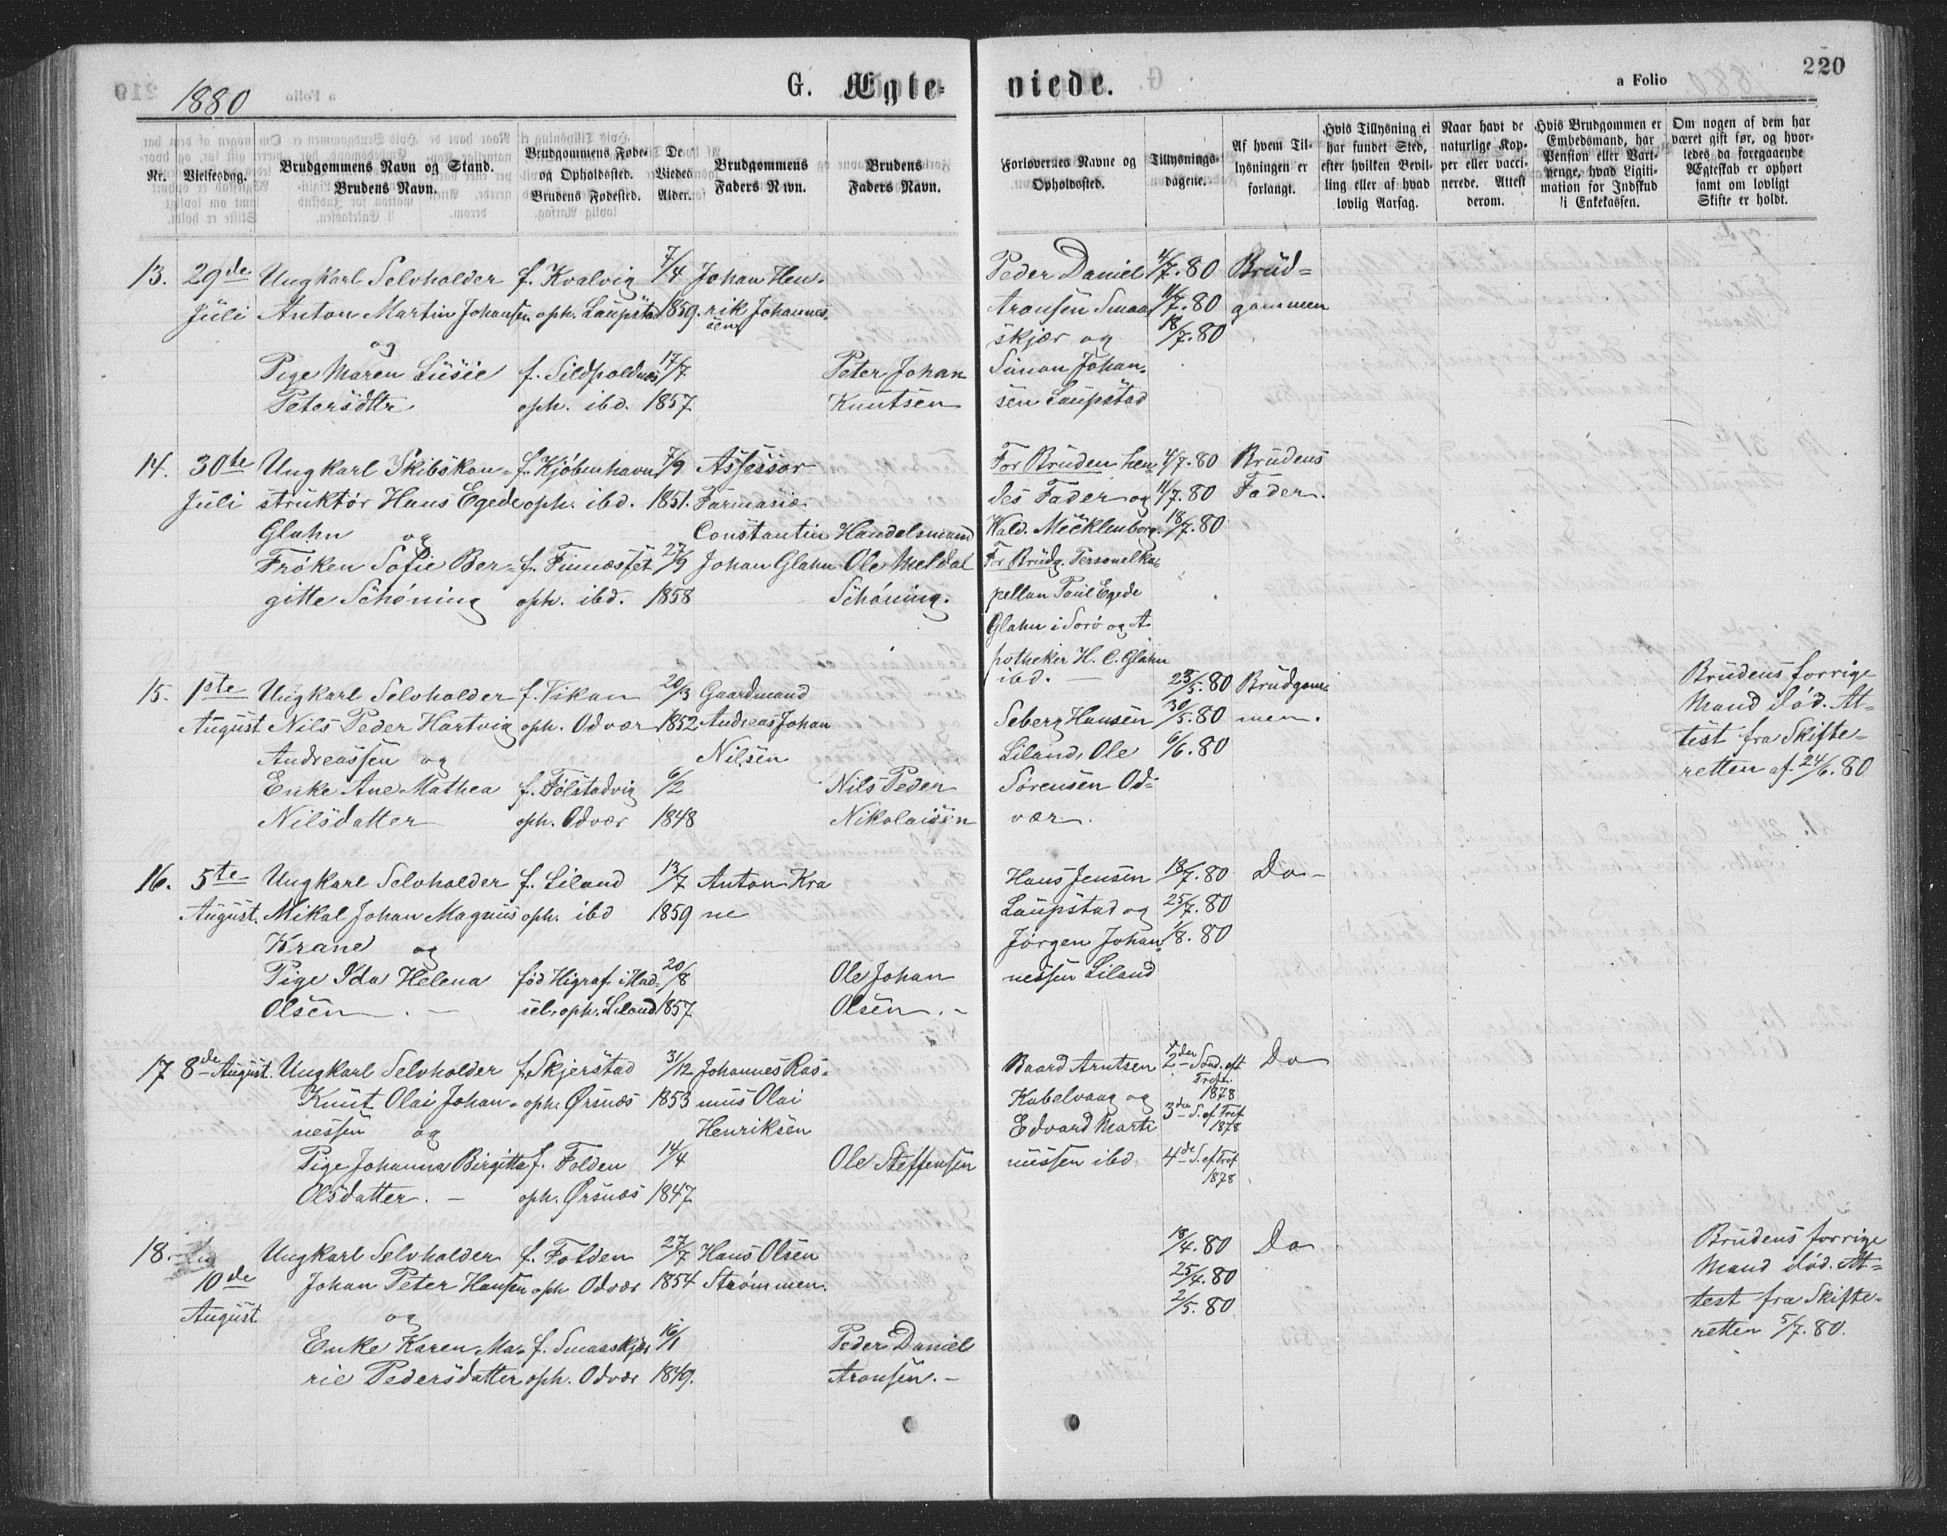 1880
G. Ægte-
viede.
a Folio
220
Nr.
Vielsesdag.
Brudgommens Navn og Stand.
Brudens Navn.
Brudgommens Føde-
og Opholdssted.
Brudens Fødested.
De
Viedes
Alder.
Brudgommens
Faders Navn.
Brudens
Faders Navn.
Forlovernes Navne og
Opholdssted.
Tillysnings-
dagene.
Af hvem Til-
lysningen er
forlangt.
Hvis Tillysning ei
har fundet Sted,
efter hvilken Bevil-
ling eller af hvad
lovlig Aarsag.
Naar havt de
naturlige Kop-
per eller vacci-
nerede. Attest
derom.
Hvis Brudgommen er
Embedsmand, har
Pension eller Vart-
penge, hvad Ligiti-
mation for Indskud
i Enkekassen.
Om nogen af dem har
været gift før, og hvor-
ledes da foregaaende
Ægteskab er ophørt
samt om lovligt
Skifte er holdt.
13. 29de Ungkarl Selvholder f. Kvalvig 7/4 Johan Hen- Peder Daniel 4/7.80 Brud-
Juli Anton Martin Johansen oph. Laupstad 1859. rik Johannes- Aronsen Smaa 11/7.80 gommen
og sen skjær og 18/7.80
Pige Maren Lusie f. Sildpoldnæs 17/7 Peter Johan Simon Johan-
Petersdtr oph. ibd. 1857. Knutsen sen Laupstad
14. 30te Ungkarl Skibskon- f. Kjøbenhavn 7/9 Assessor For Bruden hen 4/7.80 Brudens
Juli struktør Hans Egede oph. ibd. 1851. Farmasiæ des Fader og 11/7.80 Fader.
Glahn og Constantin Handelsmand Wald. Mecklenborg. 18/7.80
Frøken Sofie Ber- f. Finnæsset 27/9 Johan Glahn Ole Meldal For Brudg. Personelka-
gitte Schøning oph. ibd. 1858 Schøning. pellan Poul Egede
Glahn i Sorø og A
potheker H. C. Glahn
ibd.
15. 1ste Ungkarl Selvholder f. Vikan 20/3 Gaardmand 23/5.80 Brudgom- Brudens forrige
August Nils Peder Hartvig oph. Odvær 1852 Andreas Johan Seberg Hansen 30/5.80 men. Mand død. At-
Andreassen og Nilsen Liland, Ole 6/6.80 test fra Skifte-
Enke Ane Mathea f. Følstadvig 6/2 Nils Peder Sørensen Od- retten af 24/6.80
Nilsdatter oph. Odvær 1848 Nikolaisen vær.
16. 5te Ungkarl Selvholder f. Liland 13/7 Anton Kra Hans Jensen 18/7.80 Do
August. Mikal Johan Magnus oph. ibd 1859 ne Laupstad og 25/7.80
Krane og Jørgen Johan 1/8.80
Pige Ida Helena fød Higraf i Had- 20/8 Ole Johan nessen Liland
Olsen sel. oph. Liland 1857. Olsen.
17 8de August. Ungkarl Selvholder f. Skjerstad 31/12 Johannes Ras- Baard Arntsen 2den Sønd. eft Do
Tref.
Knut Olai Johan- oph. Ørsnæs 1853 mus Olai Kabelvaag og 1878
nessen og Henriksen Edvard Marti 3den S. ef Tref 1878
Pige Johanna Birgitta f. Folden 14/4 Ole Steffensen nussen ibd 4de S. ef Tref
Olsdatter. oph. Ørsnæs 1847. 1878
18. Ungkarl Selvholder f. Folden 27/7 Hans Olsen 18/4.80 Do Brudens forrige
10de Johan Peter Hansen oph Odvær 1854 Strømmen. 25/4.80 Mand død. At-
August og 2/5.80 test fra Skifte-
Enke Karen Ma- f. Smaaskjær 16/1 Peder Daniel retten 5/7.80.
rie Pedersdatter oph. Odvær 1849. Aronsen.